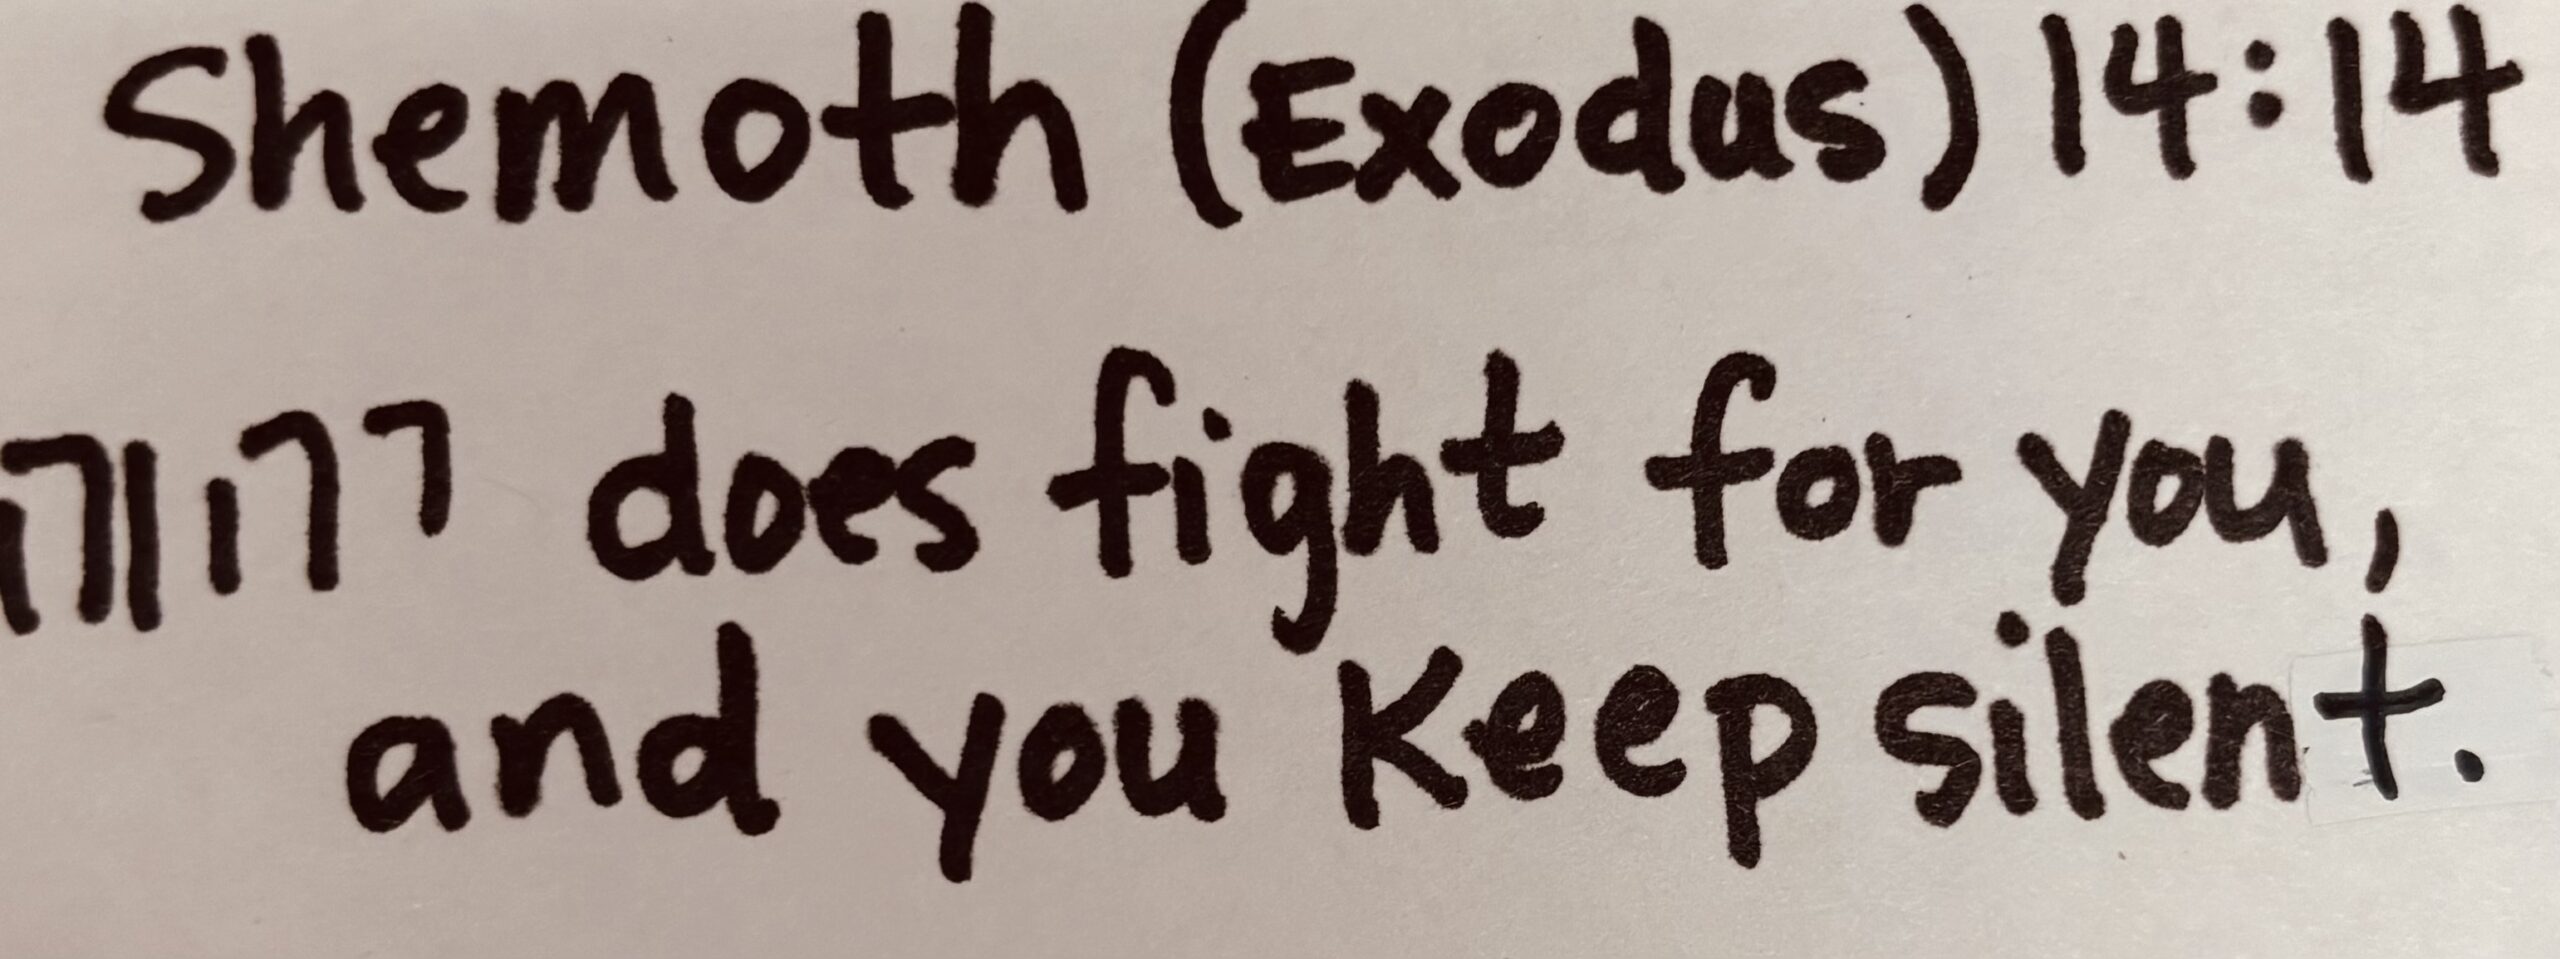 Shemoth (Exodus) 14:14
יהוה does fight for you,
and you Keep silent.